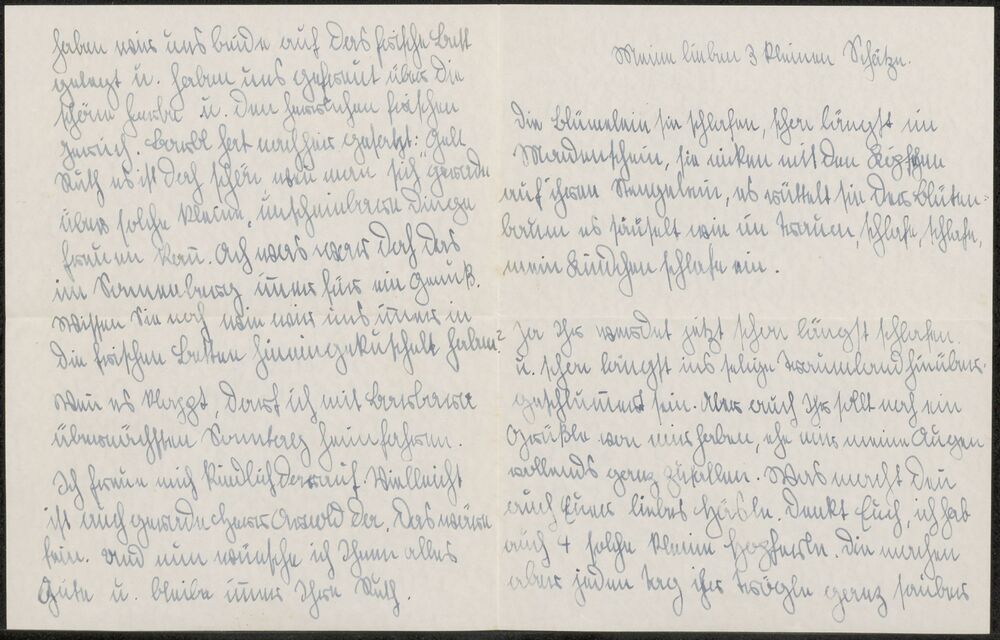 haben wir uns beide auf das frische Bett
gelegt u. haben uns gefreut über die
schöne Farbe u. den herrlichen frischen
Geruch. Barbl hat nachher gesagt: "Gell
Ruth es ist doch schön wenn man sich gerade
über solche kleine, unscheinbare Dinge
freuen kan̄. Ach was war doch das
im Sonnenberg im̄er für ein Genuß.
Wissen Sie noch wie wir uns im̄er in
die frischen Betten hineingekuschelt haben?
Wen̄ es klappt, darf ich mit Barbara
übernächsten Sonntag heimfahren.
Ich freue mich kindlich darauf. Vielleicht
ist auch gerade Herr Arnold da. Das wäre
fein. Und nun wünsche ich Ihnen alles
Gute u. bleibe im̄er Ihre Ruth.
Meine lieben 3 kleinen Schätze.
Die Blümelein sie schlafen, schon längst im
Mondenschein, sie nicken mit den Köpfchen
auf ihren Stengelein, es rüttelt sie der Blüten-
baum es säuselt wie im Traum, schlafe, schlafe,
mein Kindchen schlafe ein.
Ja Ihr werdet jetzt schon längst schlafen
u. schon längst ins selige Traumland hinüber-
geschlum̄ert sein. Aber auch Ihr sollt noch ein
Grüßle von mir haben, ehe mir meine Augen
vollends ganz zufallen. Was macht den̄
auch Euer liebes Häsle. Denkt Euch, ich hab
auch 4 solche kleine Hopferle. Die machen
aber jeden Tag ihr Trögle ganz sauber